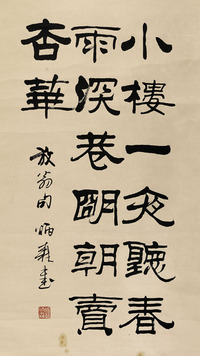 小樓一夜聽春
雨深巷朙朝賣
杏華
放翁句 炳森書